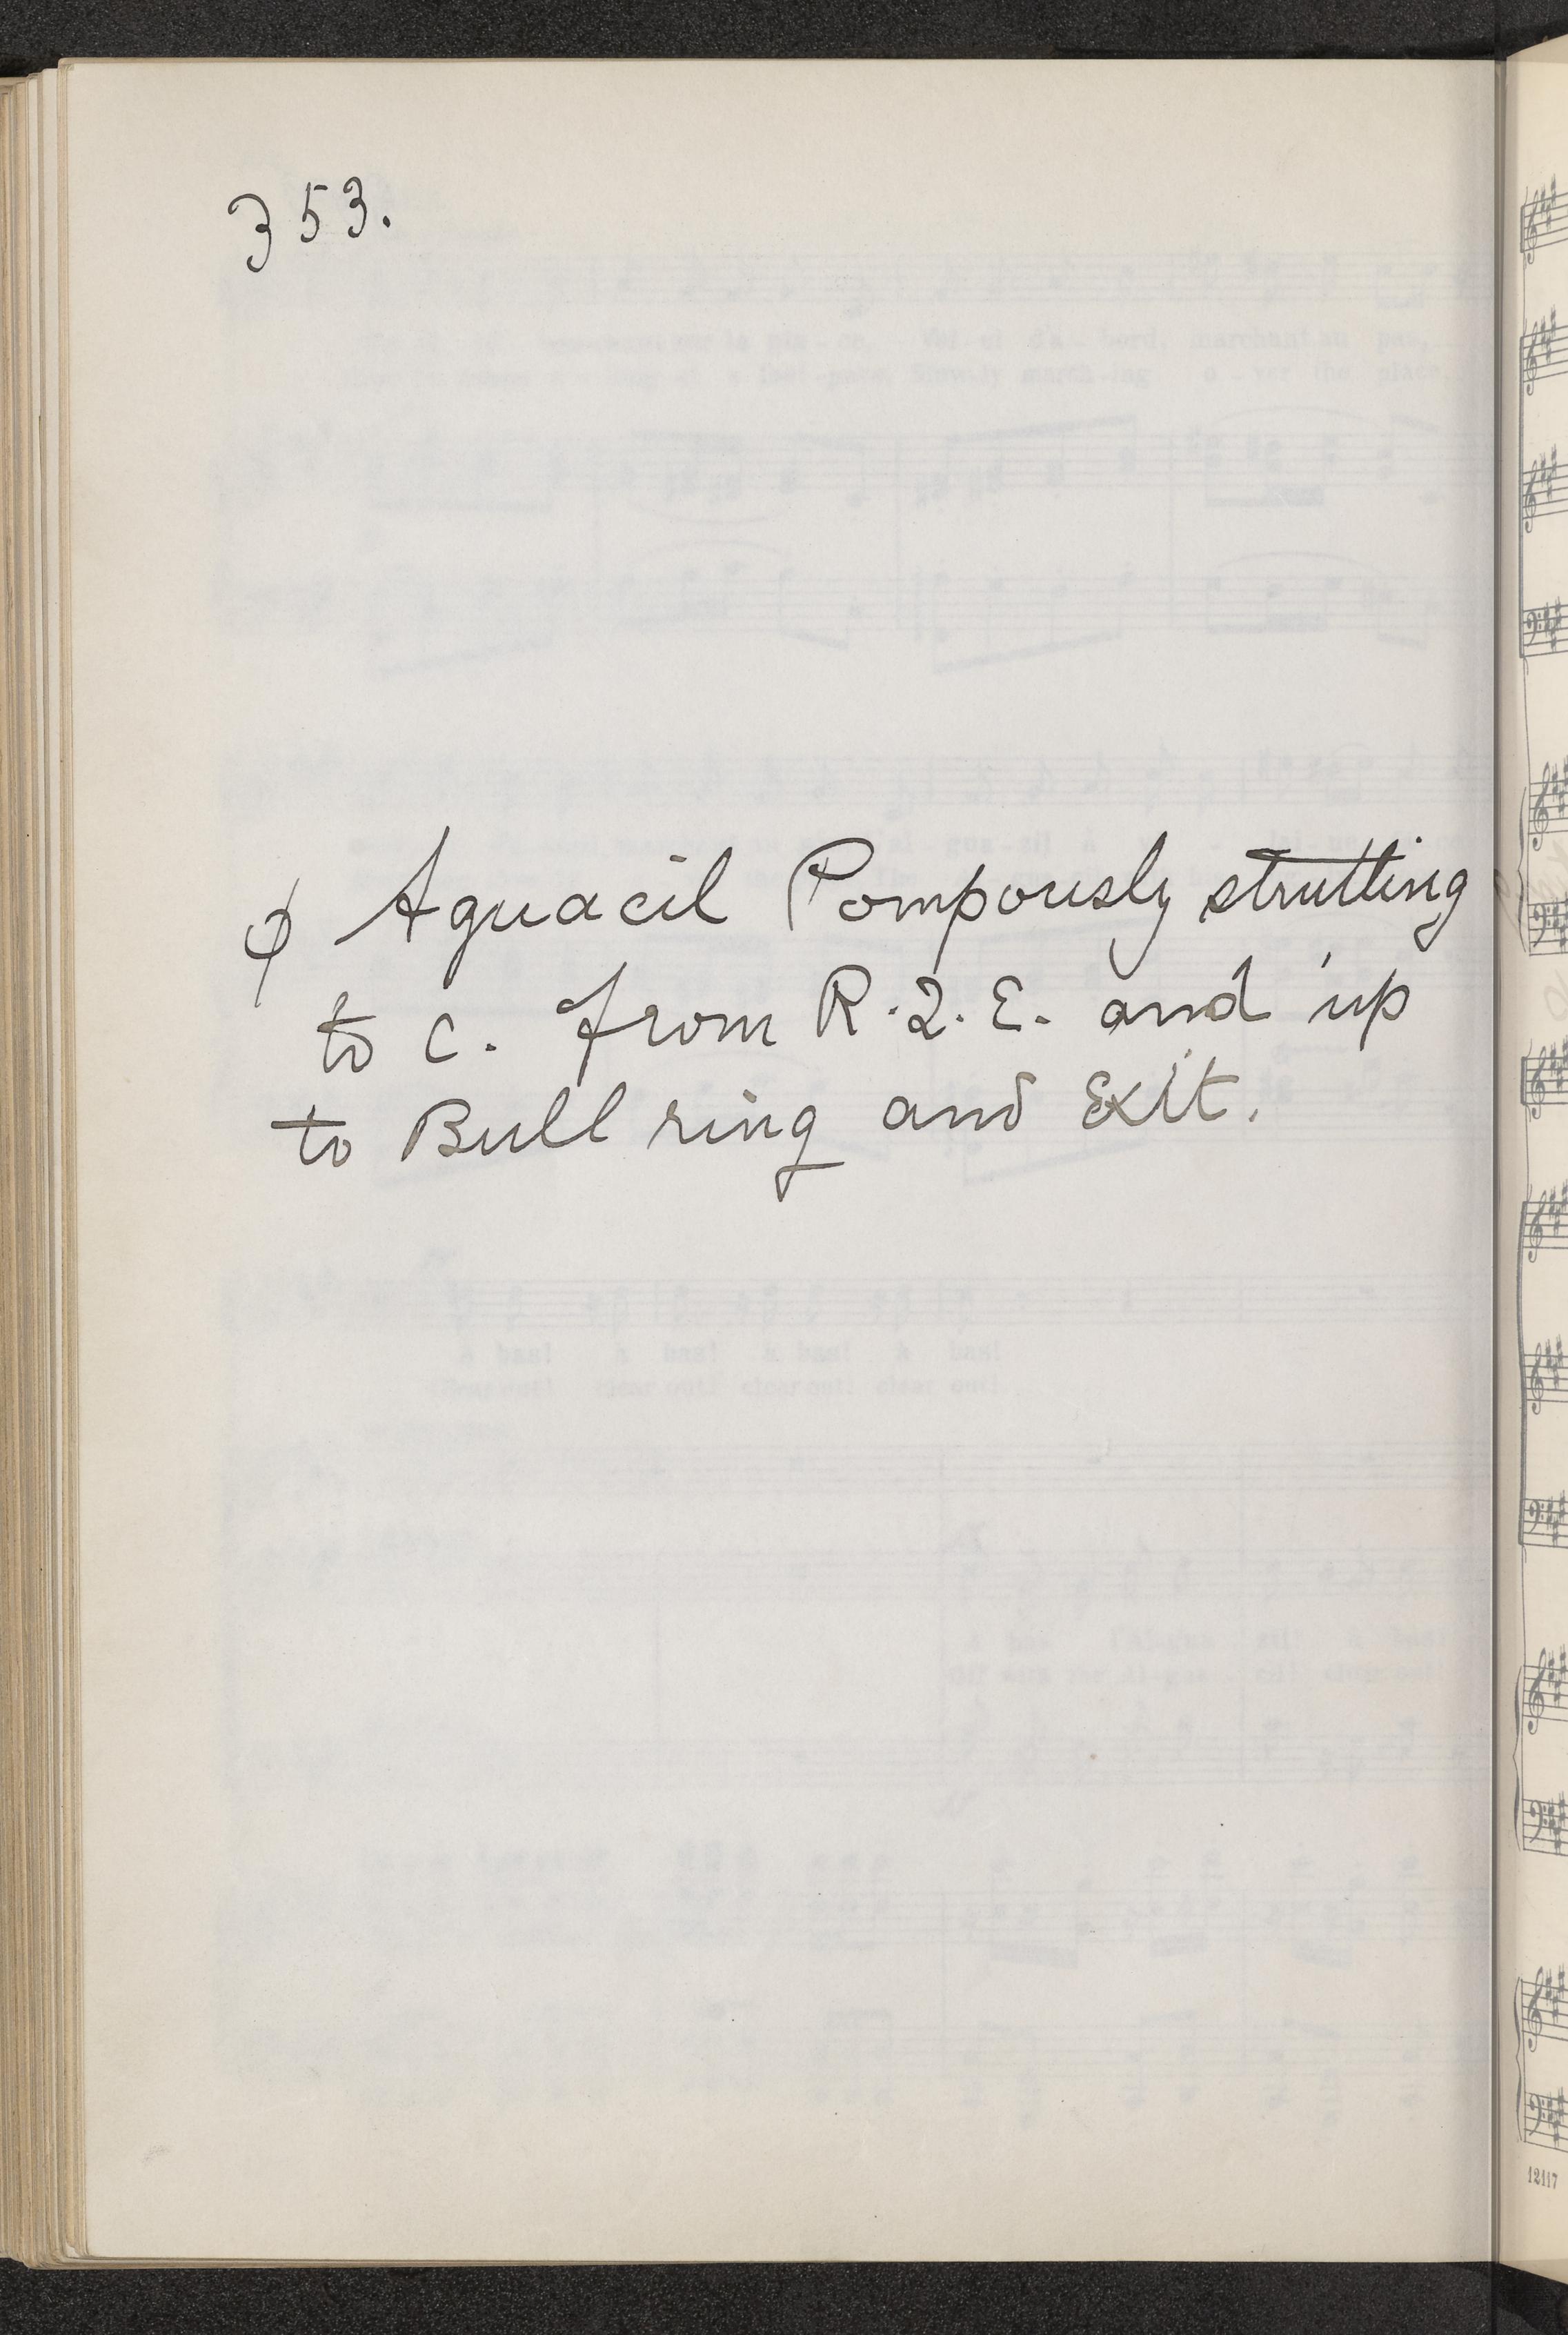 353.
φ Aguacil Pompously strutting
to C. from R.2.E. and up
to Bull ring and Exit.
12117